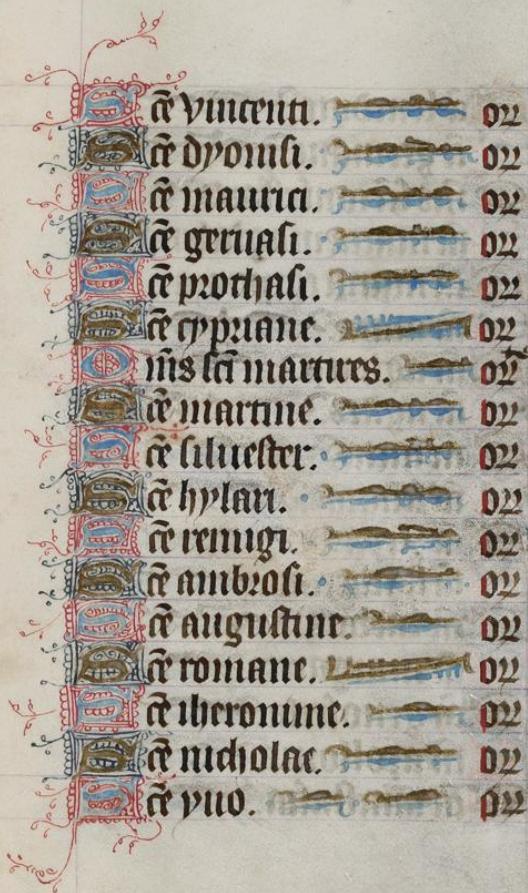 Sc̄e vincenti. or
Sc̄e dyonisi. or
Sc̄e maurici. or
Sc̄e geruasi. or
Sc̄e prothasi. or
Sc̄e cypriane. or
Om̄s sc̄i martires. or
Sc̄e martine. or
Sc̄e siluester. or
Sc̄e hylari. or
Sc̄e remigi. or
Sc̄e ambrosi. or
Sc̄e augustine. or
Sc̄e romane. or
Sc̄e iheronime. or
Sc̄e nicholae. or
Sc̄e yuo. or